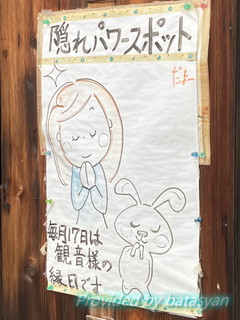 隠れパワースポット
だよー
毎月17日は
観音様の
縁日です
Provided by batasyan